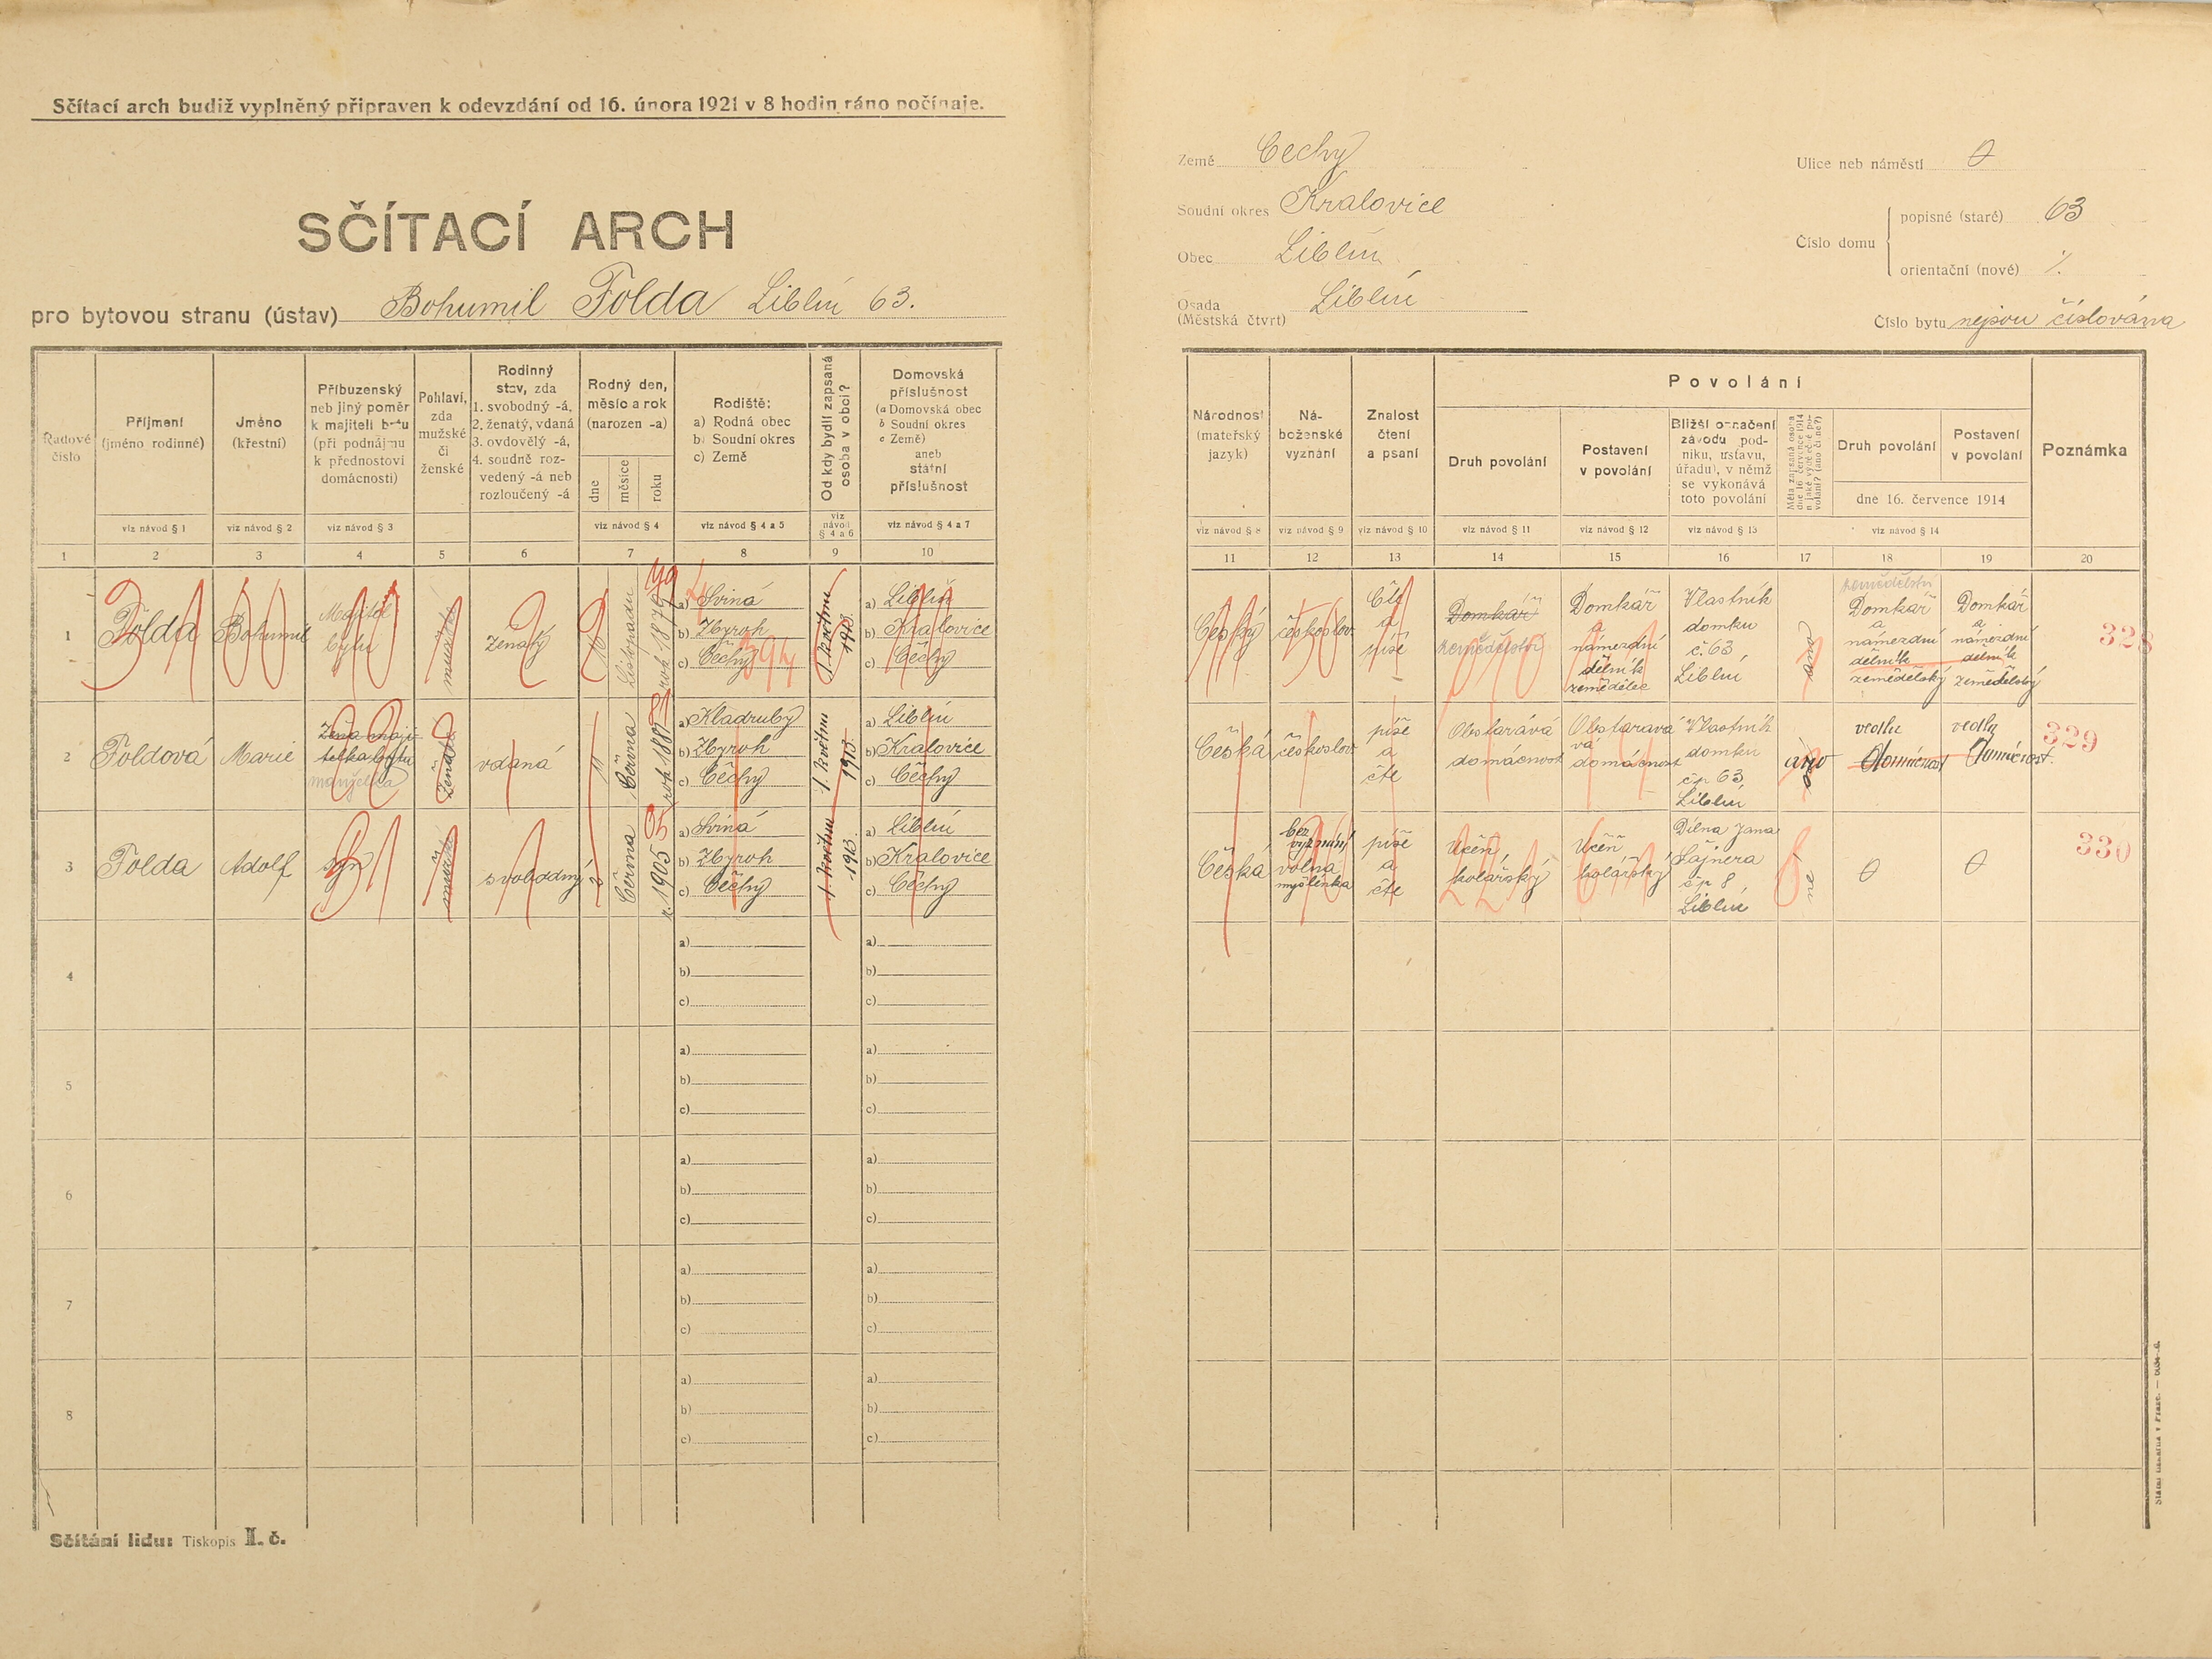 Sčítací arch budiž vyplněný připraven k odevzdání od 16. února 1921 v 8 hodin ráno počínaje.
SČÍTACÍ ARCH
pro bytovou stranu (ústav) Bohumil Folda Liblín 63.
Radové číslo
Příjmení (jméno rodinné)
Jméno (křestní)
Příbuzenský neb jiný poměr k majiteli bytu (při podnájmu k přednostovi domácnosti)
Pohlaví, zda mužské či ženské
Rodinný stav, zda 1. svobodný -á, 2. ženatý, vdaná 3. ovdovělý -á, 4. soudně rozvedený -á neb rozloučený -á
Rodný den, měsíc a rok (narozen -a)
dne
měsíce
roku
Rodiště: a) Rodná obec b) Soudní okres c) Země
Od kdy bydlí zapsaná osoba v obci?
Domovská příslušnost (a Domovská obec b Soudní okres c Země) aneb státní příslušnost
viz návod § 1
viz návod § 2
viz návod § 3
viz návod § 4
viz návod § 4 a 5
viz návod § 4 a 6
viz návod § 4 a 7
1 2 3 4 5 6 7 8 9 10
1
Folda
Bohumil
Majitel bytu
mužské
Ženatý
Listopadu
a) Sviná
b) Zbiroh
c) Čechy
394
1. květnu 1913.
a) Liblín
b) Kralovice
c) Čechy
2
Foldová
Marie
Žena majitelka bytu
manželka
vdaná
11
Června
a) Kladruby
b) Zbiroh
c) Čechy
1. květnu 1913.
a) Liblín
b) Kralovice
c) Čechy
3
Folda
Adolf
syn
mužské
svobodný
Června
r. 1905
05
a) Sviná
b) Zbiroh
c) Čechy
1. květnu 1913
a) Liblín
b) Kralovice
c) Čechy
4
a)
b)
c)
a)
b)
c)
5
a)
b)
c)
a)
b)
c)
6
a)
b)
c)
a)
b)
c)
7
a)
b)
c)
a)
b)
c)
8
a)
b)
c)
a)
b)
c)
Sčítání lidu: Tiskopis I. č.
Země Čechy
Soudní okres Kralovice
Obec Liblín
Osada (Městská čtvrt) Liblín
Ulice neb náměstí 0
Číslo domu
popisné (staré) 63
orientační (nové) %
Číslo bytu nejsou číslována
Národnost (mateřský jazyk)
Náboženské vyznání
Znalost čtení a psaní
Povolání
Druh povolání
Postavení v povolání
Bližší označení závodu podniku, ústavu, úřadu), v němž se vykonává toto povolání
Měla zapsaná osoba dne 16. července 1914 nějaké výdělečné povolání? (ano či ne?)
Druh povolání
Postavení v povolání
dne 16. července 1914
Poznámka
viz návod § 8
viz návod § 9
viz návod § 10
viz návod § 11
viz návod § 12
viz návod § 13
viz návod § 14
11 12 13 14 15 16 17 18 19 20
Český
českoslov.
Čte a píše
Domkář
zemědělství
Domkář a námezdní dělník zemědělec
Vlastník domku č. 63 Liblín
ano
zemědělství
Domkář a námezdní dělník zemědělský
Domkář a námezdní dělník zemědělský
328
Česká
českoslov
píše a čte
Obstarává domácnost
Obstaravá vá domácnost
Vlastník domku čp 63 Liblín
ano
vedla domácnost
vedla domácnost.
329
Česká
bez vyznání volná myšlénka
píše a čte
Učeň kolářský
221
Učeň kolářský
Dílna Jana Šajnera čp 8, Liblín
ne
0
0
330
Státní tiskárna v Praze.